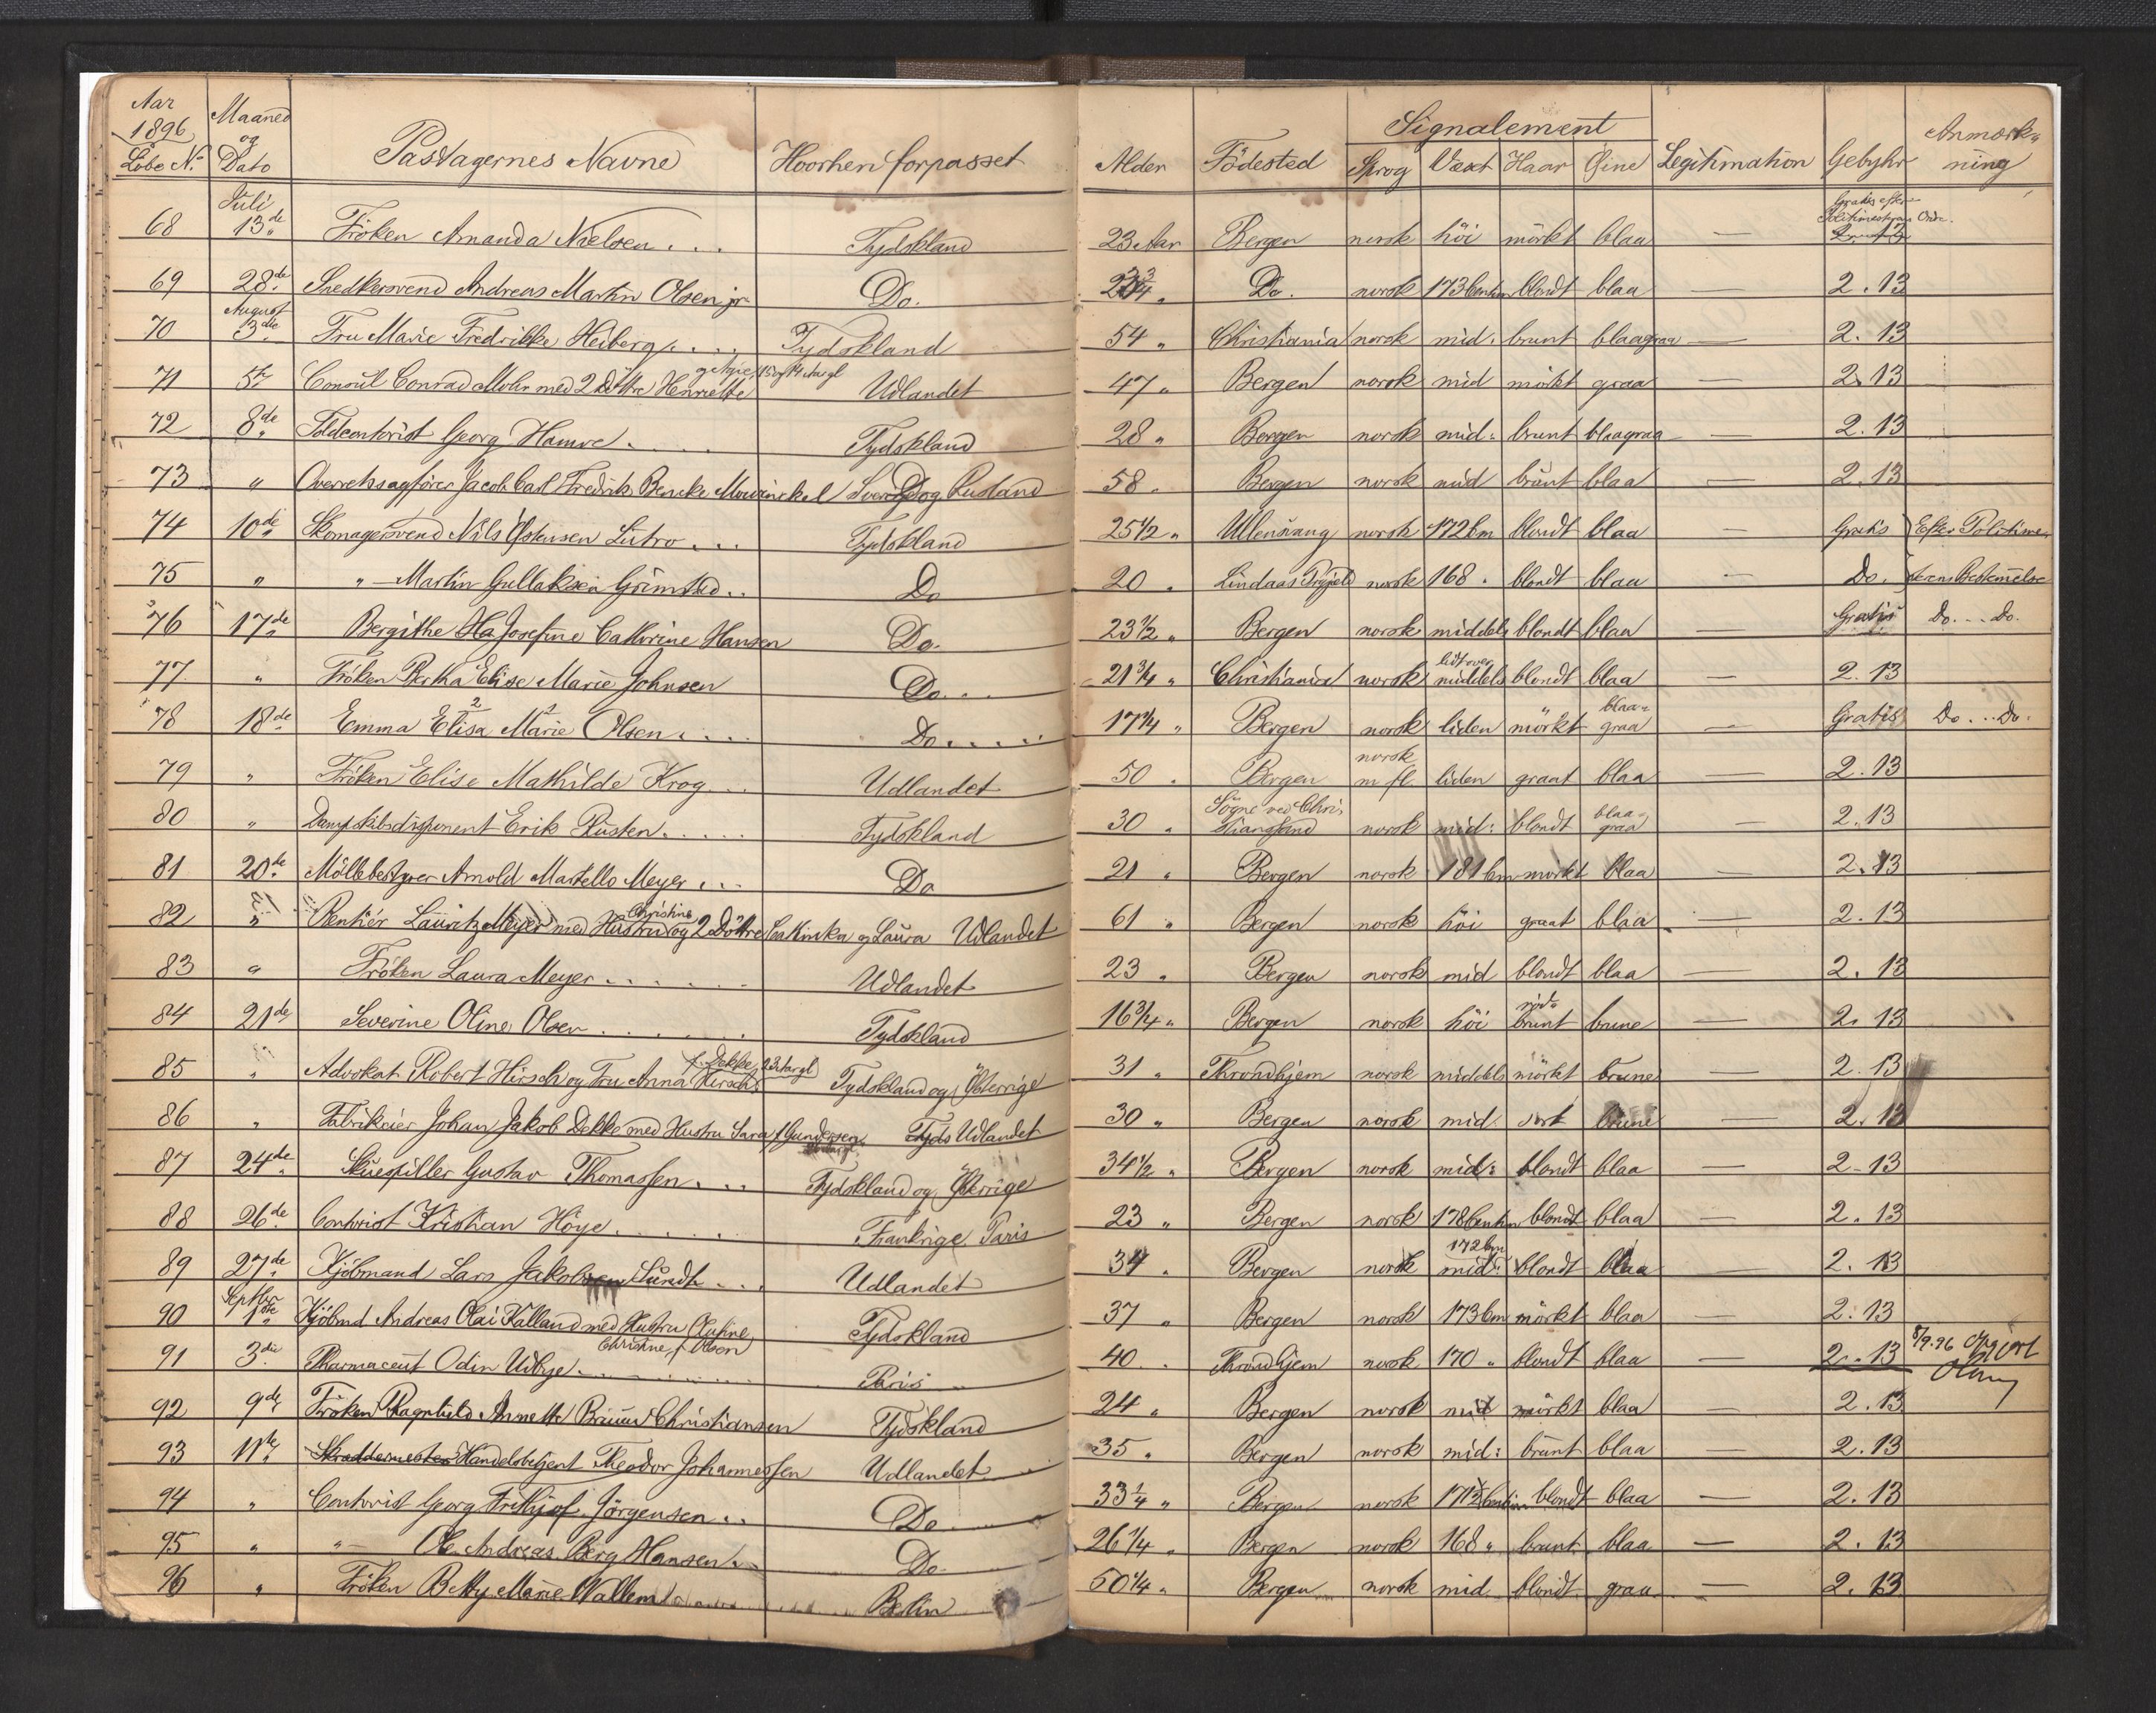 Aar 1896 Løbe No. Maaned og Dato Pastagernes Navne Hvorhen forpasset Alder Födested Signalement Sprog Vext Haar Øine Legitimation Gebyhr Anmærkning
68 Juli 13de Fröken Amanda Nielsen . . . Tydskland 23 Aar Bergen norsk höi mörkt blaa — Gratis efter Politimesterens Ordr. 2.13
69 28de Snedkersvend Andreas Martin Olsen jr. Do. 23 3/4 " Do. norsk 173 Centim blondt blaa 2.13
70 August 3die Fru Marie Fredrikke Heiberg . . . . Tydskland 54 " Christiania norsk mid: brunt blaagraa — 2.13
71 5te Consül Conrad Mohr med 2 Döttre Henriette og Agie, 15 og 14 Aar gl Udlandet 47 " Bergen norsk mid mörkt graa — 2.13
72 8de Toldcontorist Georg Hamre . . . . Tydskland 28 " Bergen norsk mid: brunt blaagraa — 2.13
73 " Overretssagförer Jacob Carl Fredrik Bencke Mowinckel Sverig og Rusland 58 " Bergen norsk mid brünt blaa — 2.13
74 10de Skomagersvend Nils Östensen Lütro . . . Tydskland 25 1/2 " Ullensvang norsk 172 Cm blondt blaa — Gratis Efter Politime-
75 " " — Martin Gullaksen Grimstad . . Do 20 " Lindaas Prgjeld norsk 168 " blondt blaa — Do. sterens Bestemelse
76 17de Bergithe Ha Josefine Cathrine Hansen Do. 23 1/2 " Bergen norsk middels blondt blaa — Gratis Do. . . Do.
77 " Fröken Bertha Elise Marie Johnsen Do. . . 21 3/4 " Christiania norsk lidt over middels blondt blaa — 2.13
78 18de Emma Elisa Marie Olsen . . . . Do . . . . . 17 1/4 " Bergen norsk liden mörkt blaa-graa — Gratis Do . . . Do.
79 " Fröken Elise Mathilde Krog . . . Udlandet 50 " Bergen norsk m fl liden graat blaa — 2.13
80 " Dampskibsdisponent Erik Rüsten . . . . . Tydskland 30 " Sögne ved Christiansand norsk mid: blondt blaa-graa — 2.13
81 20de Möllebestyrer Arnold Martello Meyer . . . Do 21 " Bergen norsk 181 Cm mörkt blaa 2.13
82 " Rentiér Lauritz Meyer med Hustru Christine og 2 Döttre Cathinka og Laura Udlandet 61 " Bergen norsk höi graat blaa — 2.13
83 " Fröken Laura Meyer . . . . . . Udlandet 23 " Bergen norsk mid blondt blaa — 2.13
84 21de Severine Oline Olsen . . . . . . Tydskland 16 3/4 " Bergen norsk höi röd-brunt brune — 2.13
85 " Advokat Robert Hirsch og Fru Anna Hirsch f. Dekke, 23 Aar gl Tydskland og Österrige 31 " Throndhjem norsk middels mörkt brune — 2.13
86 " Fabrikeier Johan Jakob Dekke med Hustru Sara f Gundersen Tyds Udlandet 30 " Bergen norsk mid. sort brune — 2.13
87 24de Skuespiller Gustav Thomassen . . . Tydskland og Österrige 34 1/2 " Bergen norsk mid: blondt blaa — 2.13
88 26de Contorist Kristian Höye . . . . . . Frankrige, Paris 23 " Bergen norsk 178 Centim blondt blaa — 2.13
89 27de Kjöbmand Lars Jakobsen Sundt . . . . Udlandet 34 " Bergen norsk 172 Cm mid: blondt blaa — 2.13
90 Septbr 1ste Kjöbmd Andreas Olai Kalland med Hustru Olufine Christine f Olsen Tydskland 37 " Bergen norsk 173 Cm mörkt blaa — 2.13
91 3die Pharmaceut Odin Udbye . . . . . Paris 40 " Throndhjem norsk 170 " blondt blaa — 2.13 8/9.96 Opgjort
92 9de Fröken Ragnhild Annette Christiansen Tydskland 24 " Bergen norsk mid mörkt blaa — 2.13
93 11te Skræddermester Handelsbetjent Theodor Johannessen Udlandet 35 " Bergen norsk mid: brünt blaa — 2.13
94 " Contorist Georg Frithjof Jörgensen . . Do 33 1/4 " Bergen norsk 171 1/2 Centim blondt blaa — 2.13
95 " " — Ole Andreas Berg Hansen . . Do. 26 1/4 " Bergen norsk 168 " brunt blaa — 2.13
96 " Fröken Betty Marie Wallem Berlin 50 1/4 " Bergen norsk mid. blondt graa — 2.13